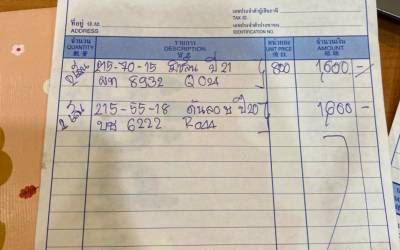 เลขประจำตัวผู้เสียภาษี
TAX ID.
ที่อยู่
ADDRESS
เลขประจำตัวประชาชน
IDENTIFICATION NO.
จำนวน รายการ หน่วยละ จำนวนเงิน
QUANTITY DESCRIPTION UNIT PRICE AMOUNT
2 เส้น 215-70-15 ปี 21 800 1,600 -
ผท 8932
2 เส้น 215-55-18 ดันลอป ปี 20 1,600 -
บษ 6222